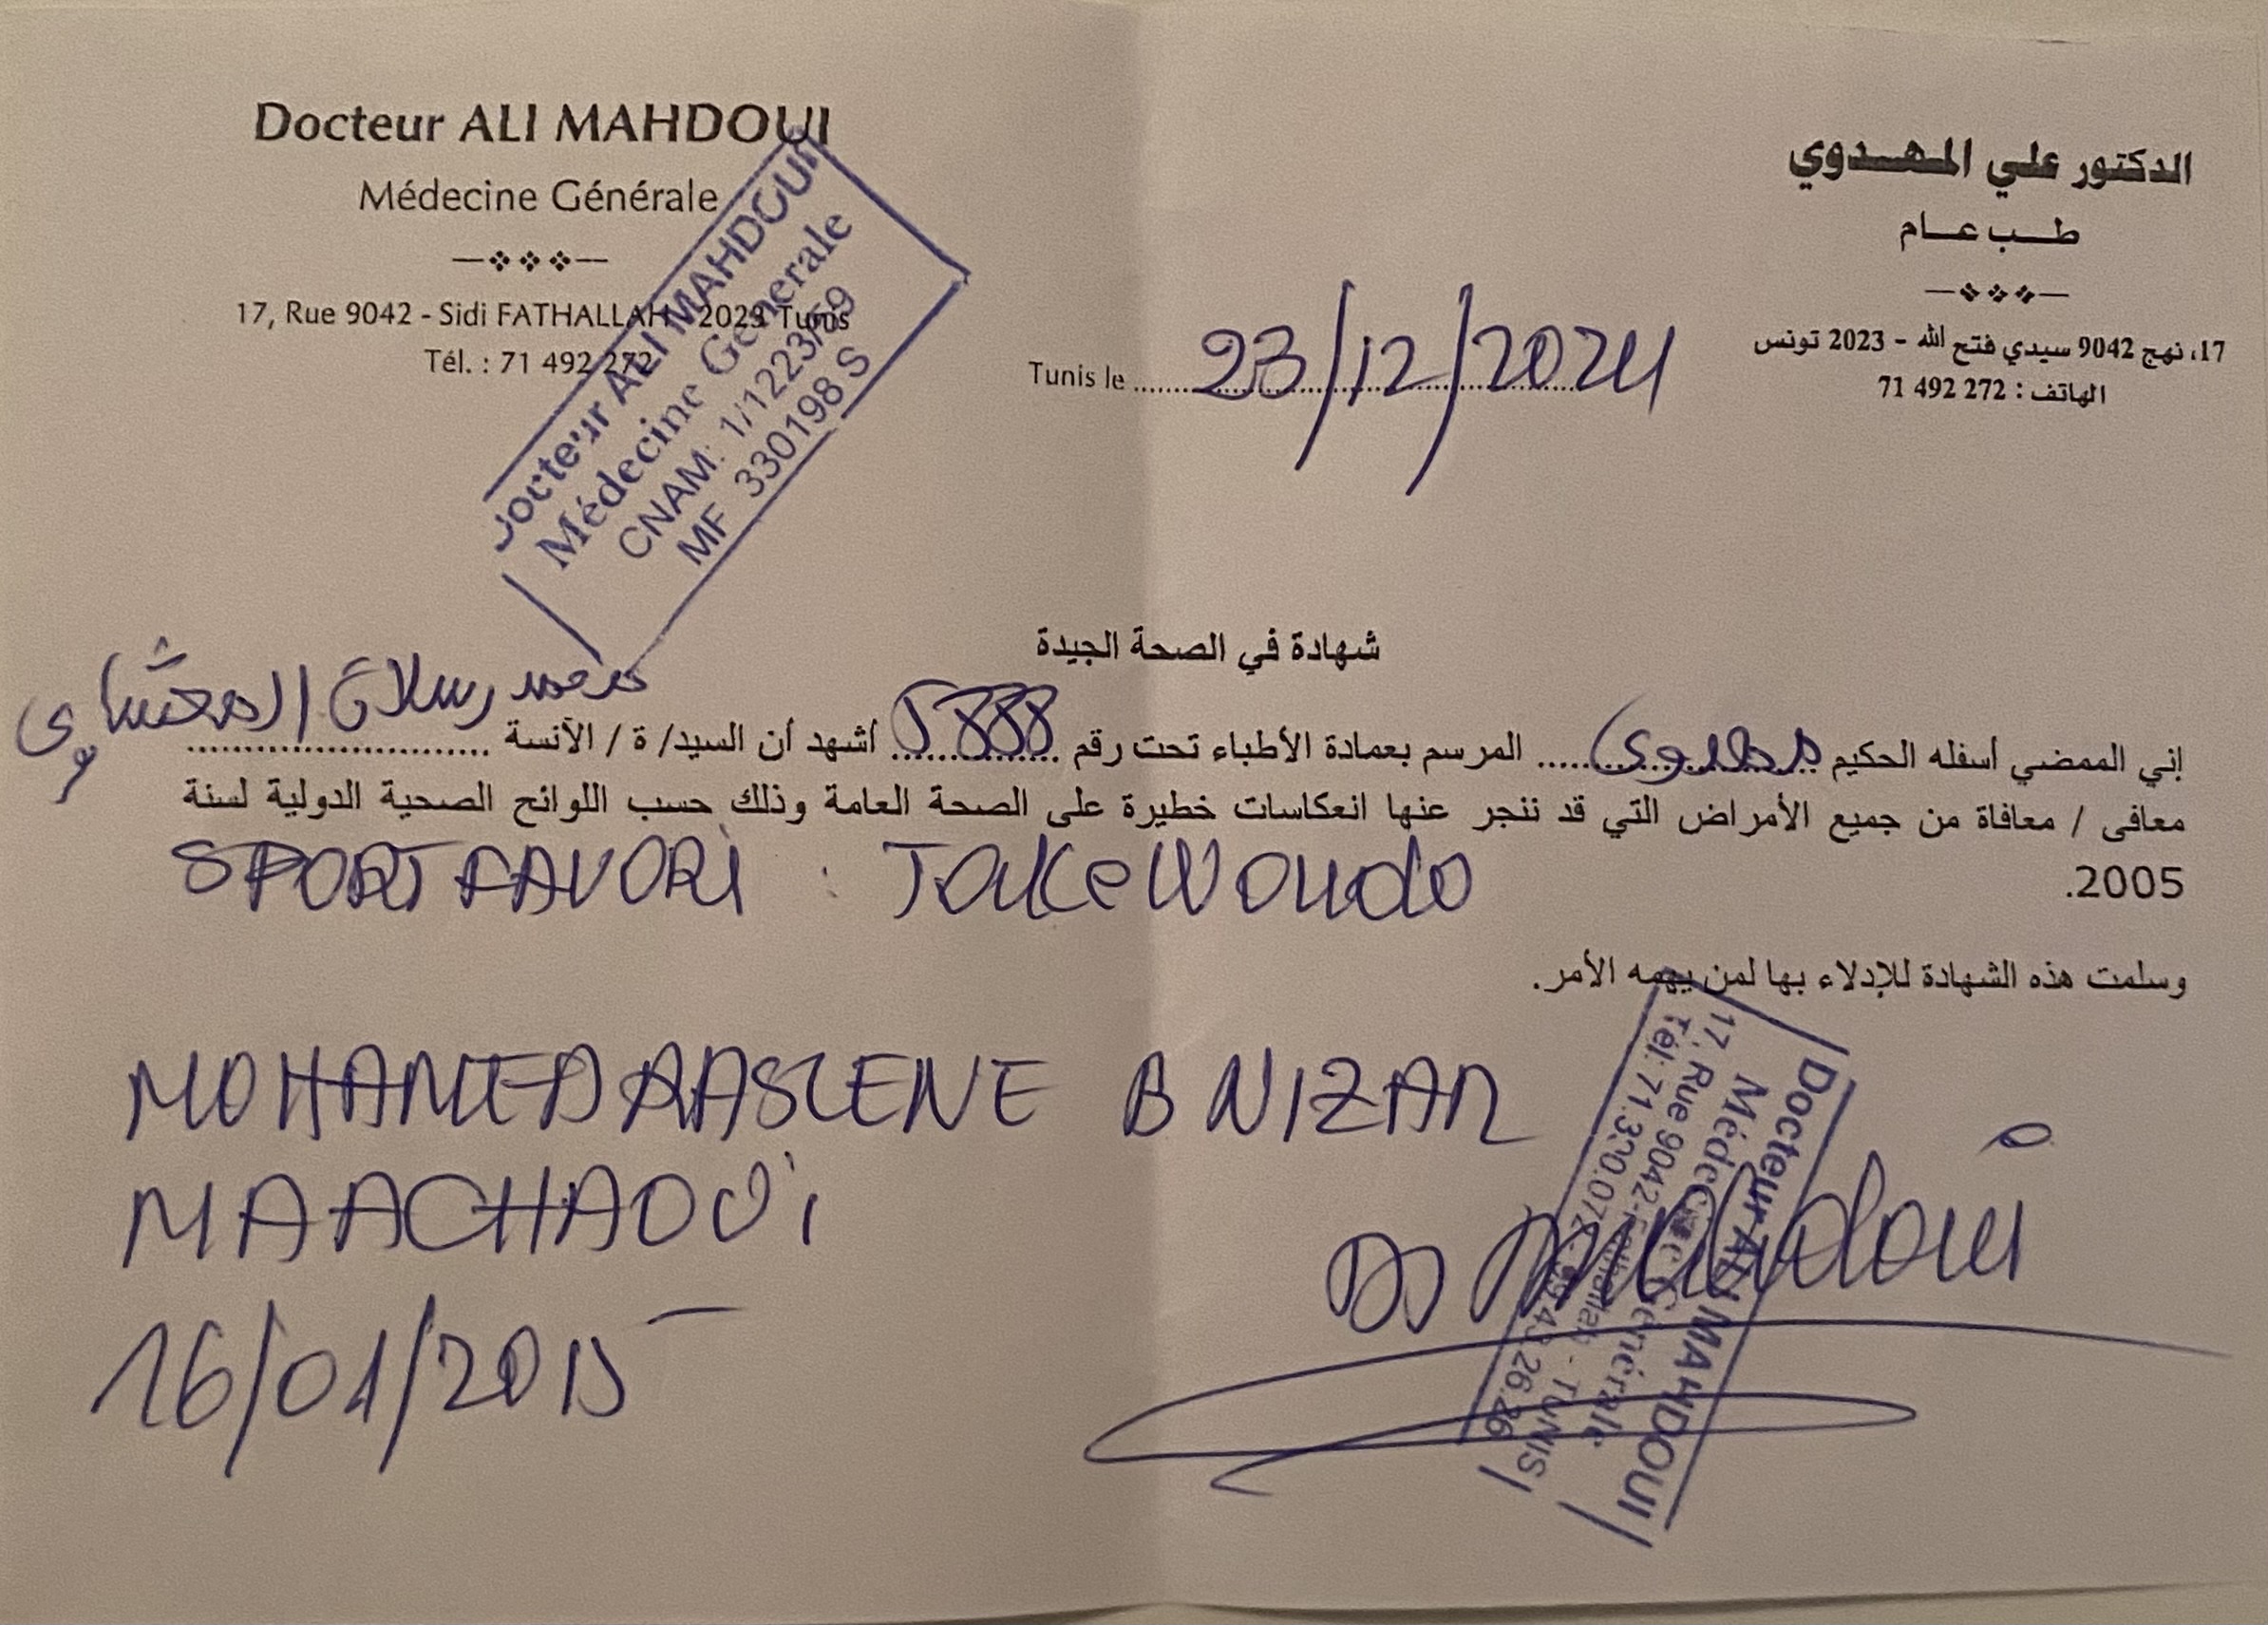 Docteur ALI MAHDOUI
Médecine Générale
17, Rue 9042 - Sidi FATHALLAH - 2023 Tunis
Tél. : 71 492 272
الدكتور علي المهدوي
طب عام
17، نهج 9042 سيدي فتح الله - 2023 تونس
الهاتف : 272 492 71
Docteur ALI MAHDOUI
Médecine Générale
CNAM: 1/1223/59
MF 330198 S
Tunis le 23/12/2024
شهادة في الصحة الجيدة
إني الممضي أسفله الحكيم مهدوي المرسم بعمادة الأطباء تحت رقم أشهد أن السيد/ ة / الآنسة محمد رسلان المعشاوي
معافى / معافاة من جميع الأمراض التي قد ننجر عنها انعكاسات خطيرة على الصحة العامة وذلك حسب اللوائح الصحية الدولية لسنة
2005.
SPORT FAVORI : TakeWondo
وسلمت هذه الشهادة للإدلاء بها لمن يهمه الأمر.
MOHAMED RASLENE B NIZAR
MAACHAOUI
16/01/2015
Dr Mahdoui
Docteur ALI MAHDOUI
Médecine Générale
17, Rue 9042- Fathallah - TUNIS
Tél: 71.390.072